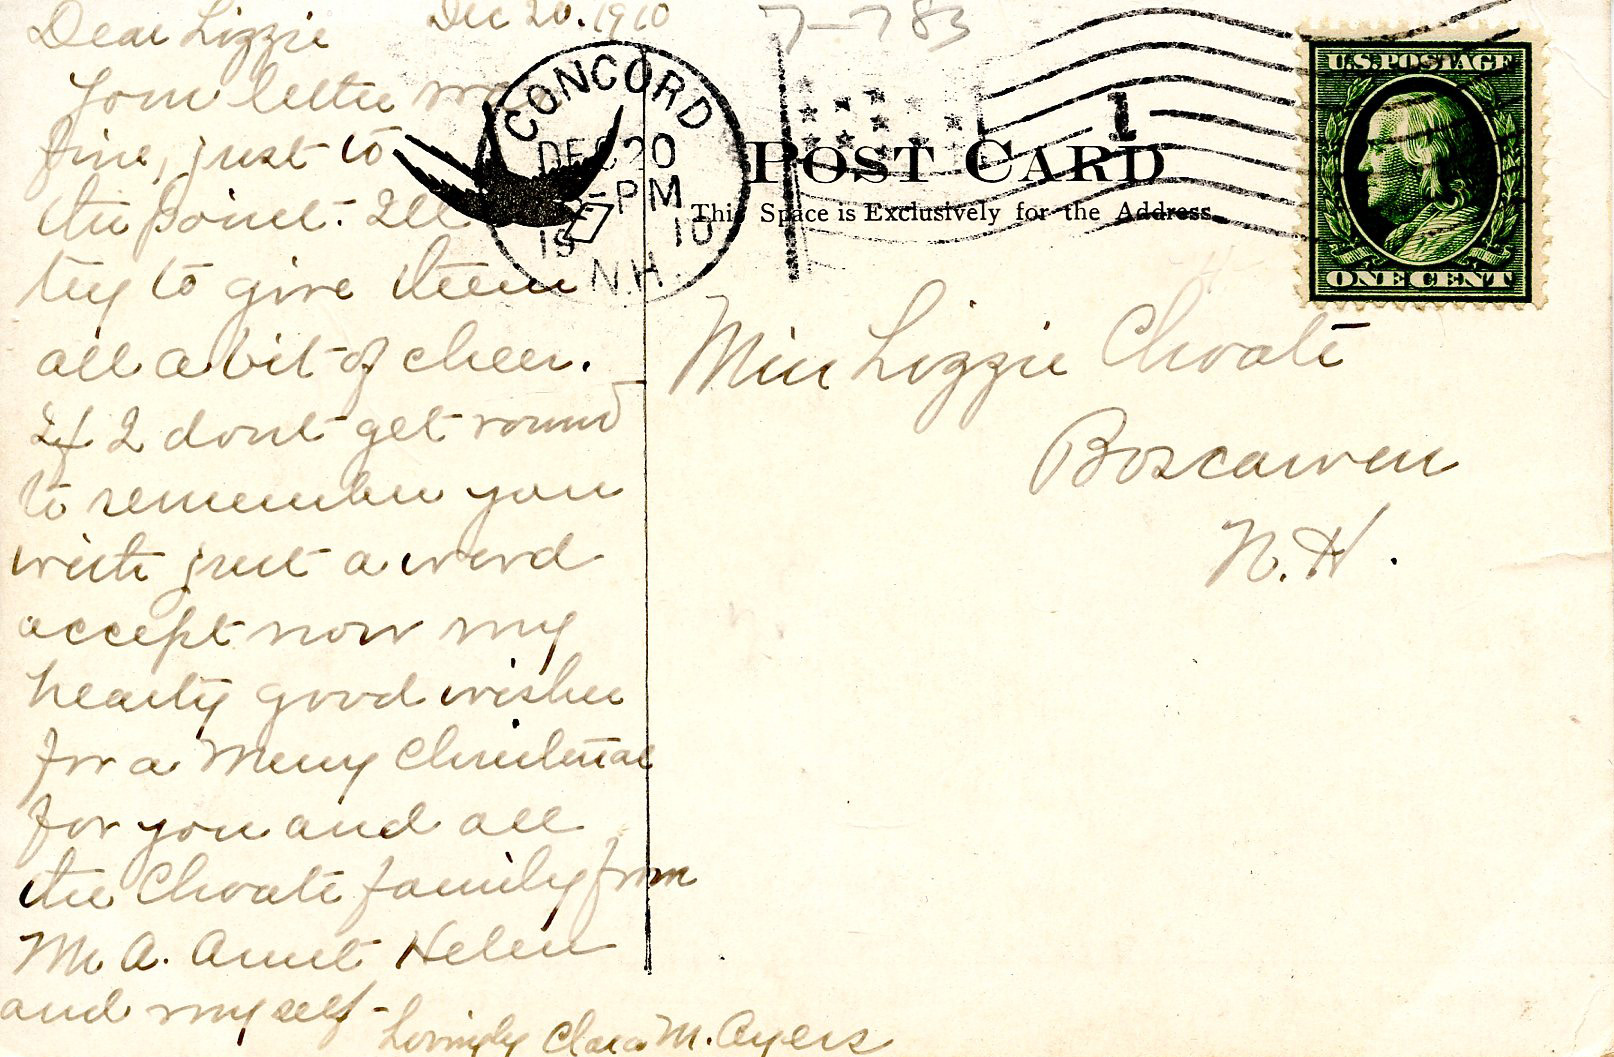 Dear Lizzie Dec 20. 1910
Your letter was
fine, just to
the point. I'll
try to give them
all a bit of cheer.
If I dont get round
to remember you
write just a word
accept now my
hearty good wishes
for a Merry Christmas
for you and all
the Choate family from
M. A. Aunt Helen
and myself -
Lovingly Clara M. Ayers
7-783
CONCORD
DEC 20
-PM
19 10
N.H.
1
POST CARD
This Space is Exclusively for the Address.
U.S. POSTAGE
ONE CENT
Miss Lizzie Choate
Boscawen
N. H.